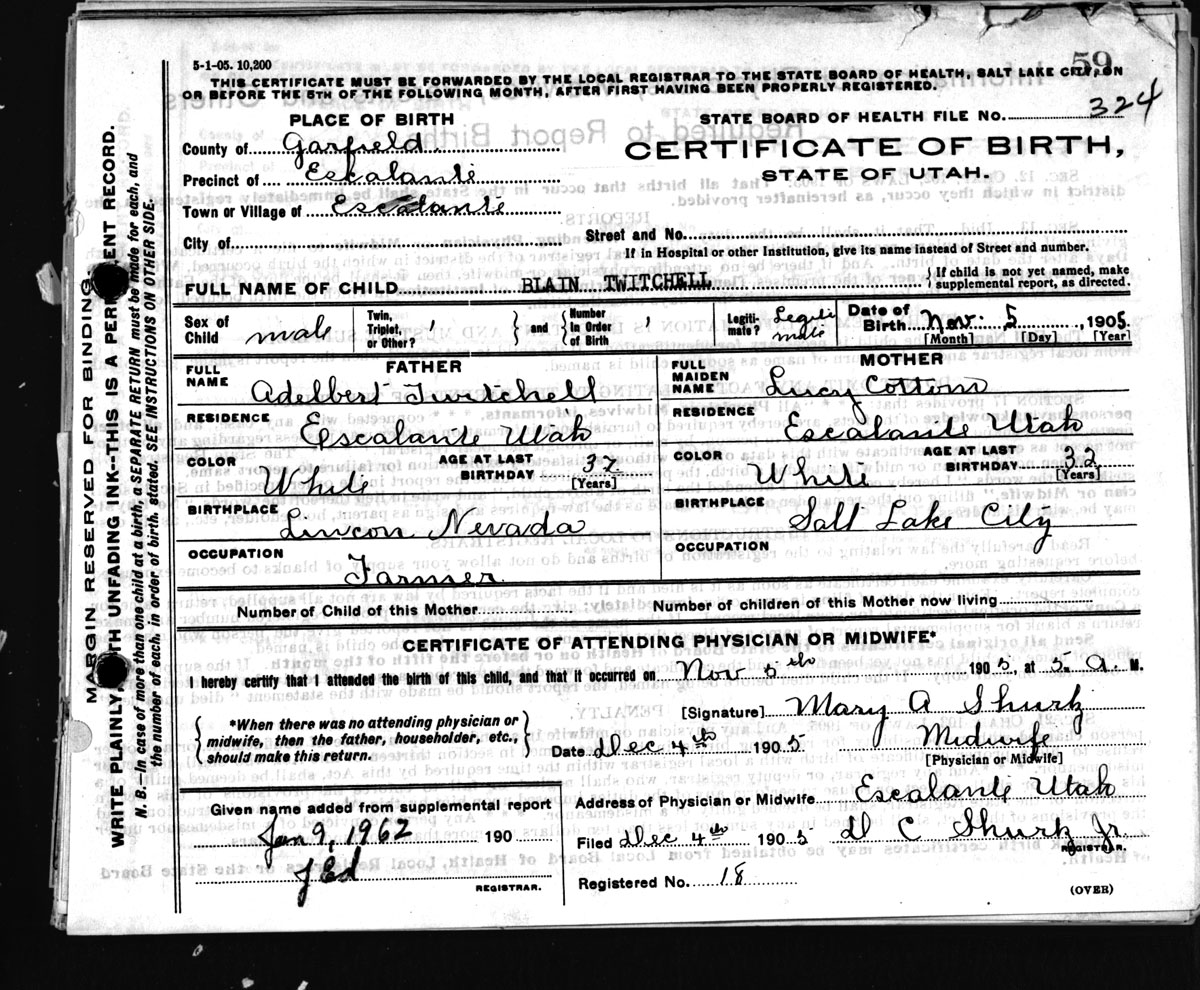 59
5-1-05. 10,200
THIS CERTIFICATE MUST BE FORWARDED BY THE LOCAL REGISTRAR TO THE STATE BOARD OF HEALTH, SALT LAKE CITY, ON
OR BEFORE THE 5TH OF THE FOLLOWING MONTH, AFTER FIRST HAVING BEEN PROPERLY REGISTERED.
PLACE OF BIRTH
STATE BOARD OF HEALTH FILE No. 324
County of Garfield
CERTIFICATE OF BIRTH,
Precinct of Escalante
STATE OF UTAH.
Town or Village of Escalante
City of
Street and No.
If in Hospital or other Institution, give its name instead of Street and number.
FULL NAME OF CHILD BLAIN TWITCHELL { If child is not yet named, make supplemental report, as directed.
Sex of Child male
Twin, Triplet, or Other? } and { Number in Order of Birth
Legitimate? Legitimate
Date of Birth Nov. 5, 1905.
[Month] [Day] [Year]
FATHER
MOTHER
FULL NAME Adelbert Twitchell
FULL MAIDEN NAME Lucy Cottom
RESIDENCE Escalante Utah
RESIDENCE Escalante Utah
COLOR White AGE AT LAST BIRTHDAY 37 [Years]
COLOR White AGE AT LAST BIRTHDAY 32 [Years]
BIRTHPLACE Lincon, Nevada
BIRTHPLACE Salt Lake City
OCCUPATION Farmer
OCCUPATION
Number of Child of this Mother
Number of children of this Mother now living
CERTIFICATE OF ATTENDING PHYSICIAN OR MIDWIFE*
I hereby certify that I attended the birth of this child, and that it occurred on Nov 5th 1905, at 5 a. M.
{ *When there was no attending physician or midwife, then the father, householder, etc., should make this return. }
[Signature] Mary A Shurtz
Date Dec 4th 1905 Midwife
[Physician or Midwife]
Given name added from supplemental report
Jan 9, 1962 190
JEd
REGISTRAR.
Address of Physician or Midwife Escalante Utah
Filed Dec 4th 1905 D C Shurtz Jr.
REGISTRAR.
Registered No. 18
(OVER)
MARGIN RESERVED FOR BINDING
WRITE PLAINLY, WITH UNFADING INK--THIS IS A PERMANENT RECORD.
N. B. In case of more than one child at a birth, a SEPARATE RETURN must be made for each, and
the number of each, in order of birth, stated. SEE INSTRUCTIONS ON OTHER SIDE.